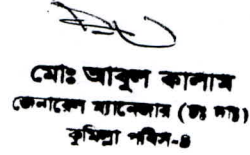 মোঃ আবুল কালাম
জেনারেল ম্যানেজার (চঃ দাঃ)
কুমিল্লা পবিস-৪